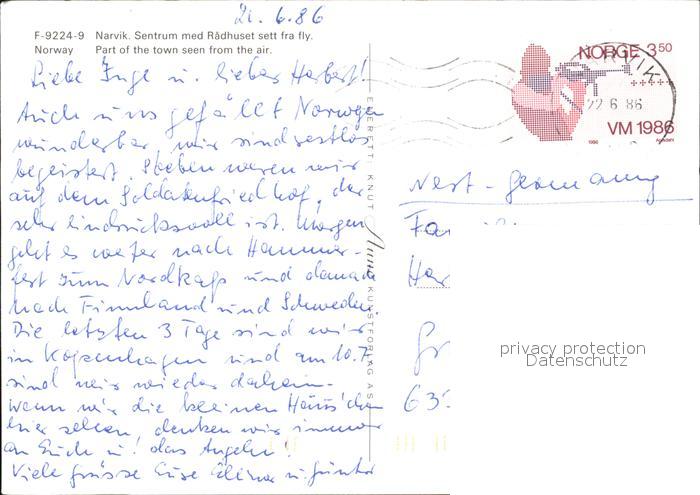 21.6.86
F-9224-9 Narvik. Sentrum med Rådhuset sett fra fly.
Norway Part of the town seen from the air.
Liebe Inge u. lieber Herbert!
Auch uns gefällt Norwegen
wunderbar, wir sind restlos
begeistert. Soeben waren wir
auf dem Soldatenfriedhof, der
sehr eindrucksvoll ist. Morgen
geht es weiter nach Hammer-
fest zum Nordkap und danach
nach Finnland und Schweden.
Die letzten 3 Tage sind wir
in Kopenhagen und am 10.7.
sind wir wieder daheim.
Wenn wir die kleinen Häus'chen
hier sehen, denken wir immer
an Euch u. das Angeln.
Viele Grüsse Eure Elinor u. Günter
ENERETT: KNUT Aune KUNSTFORLAG AS
NORGE 350
VM 1986
1986
NARVIK
22 6 86
West-Germany
Fa
Her
63
privacy protection
Datenschutz